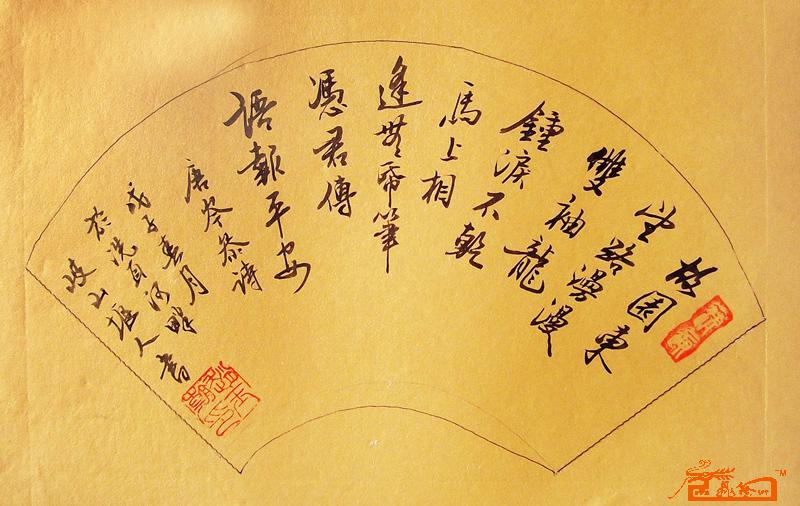 故園東
望路漫漫
雙袖龍
鍾淚不乾
馬上相
逢無帋筆
憑君傳
語報平安
唐岑參詩
戊子春月
於洗耳河畔
山人書